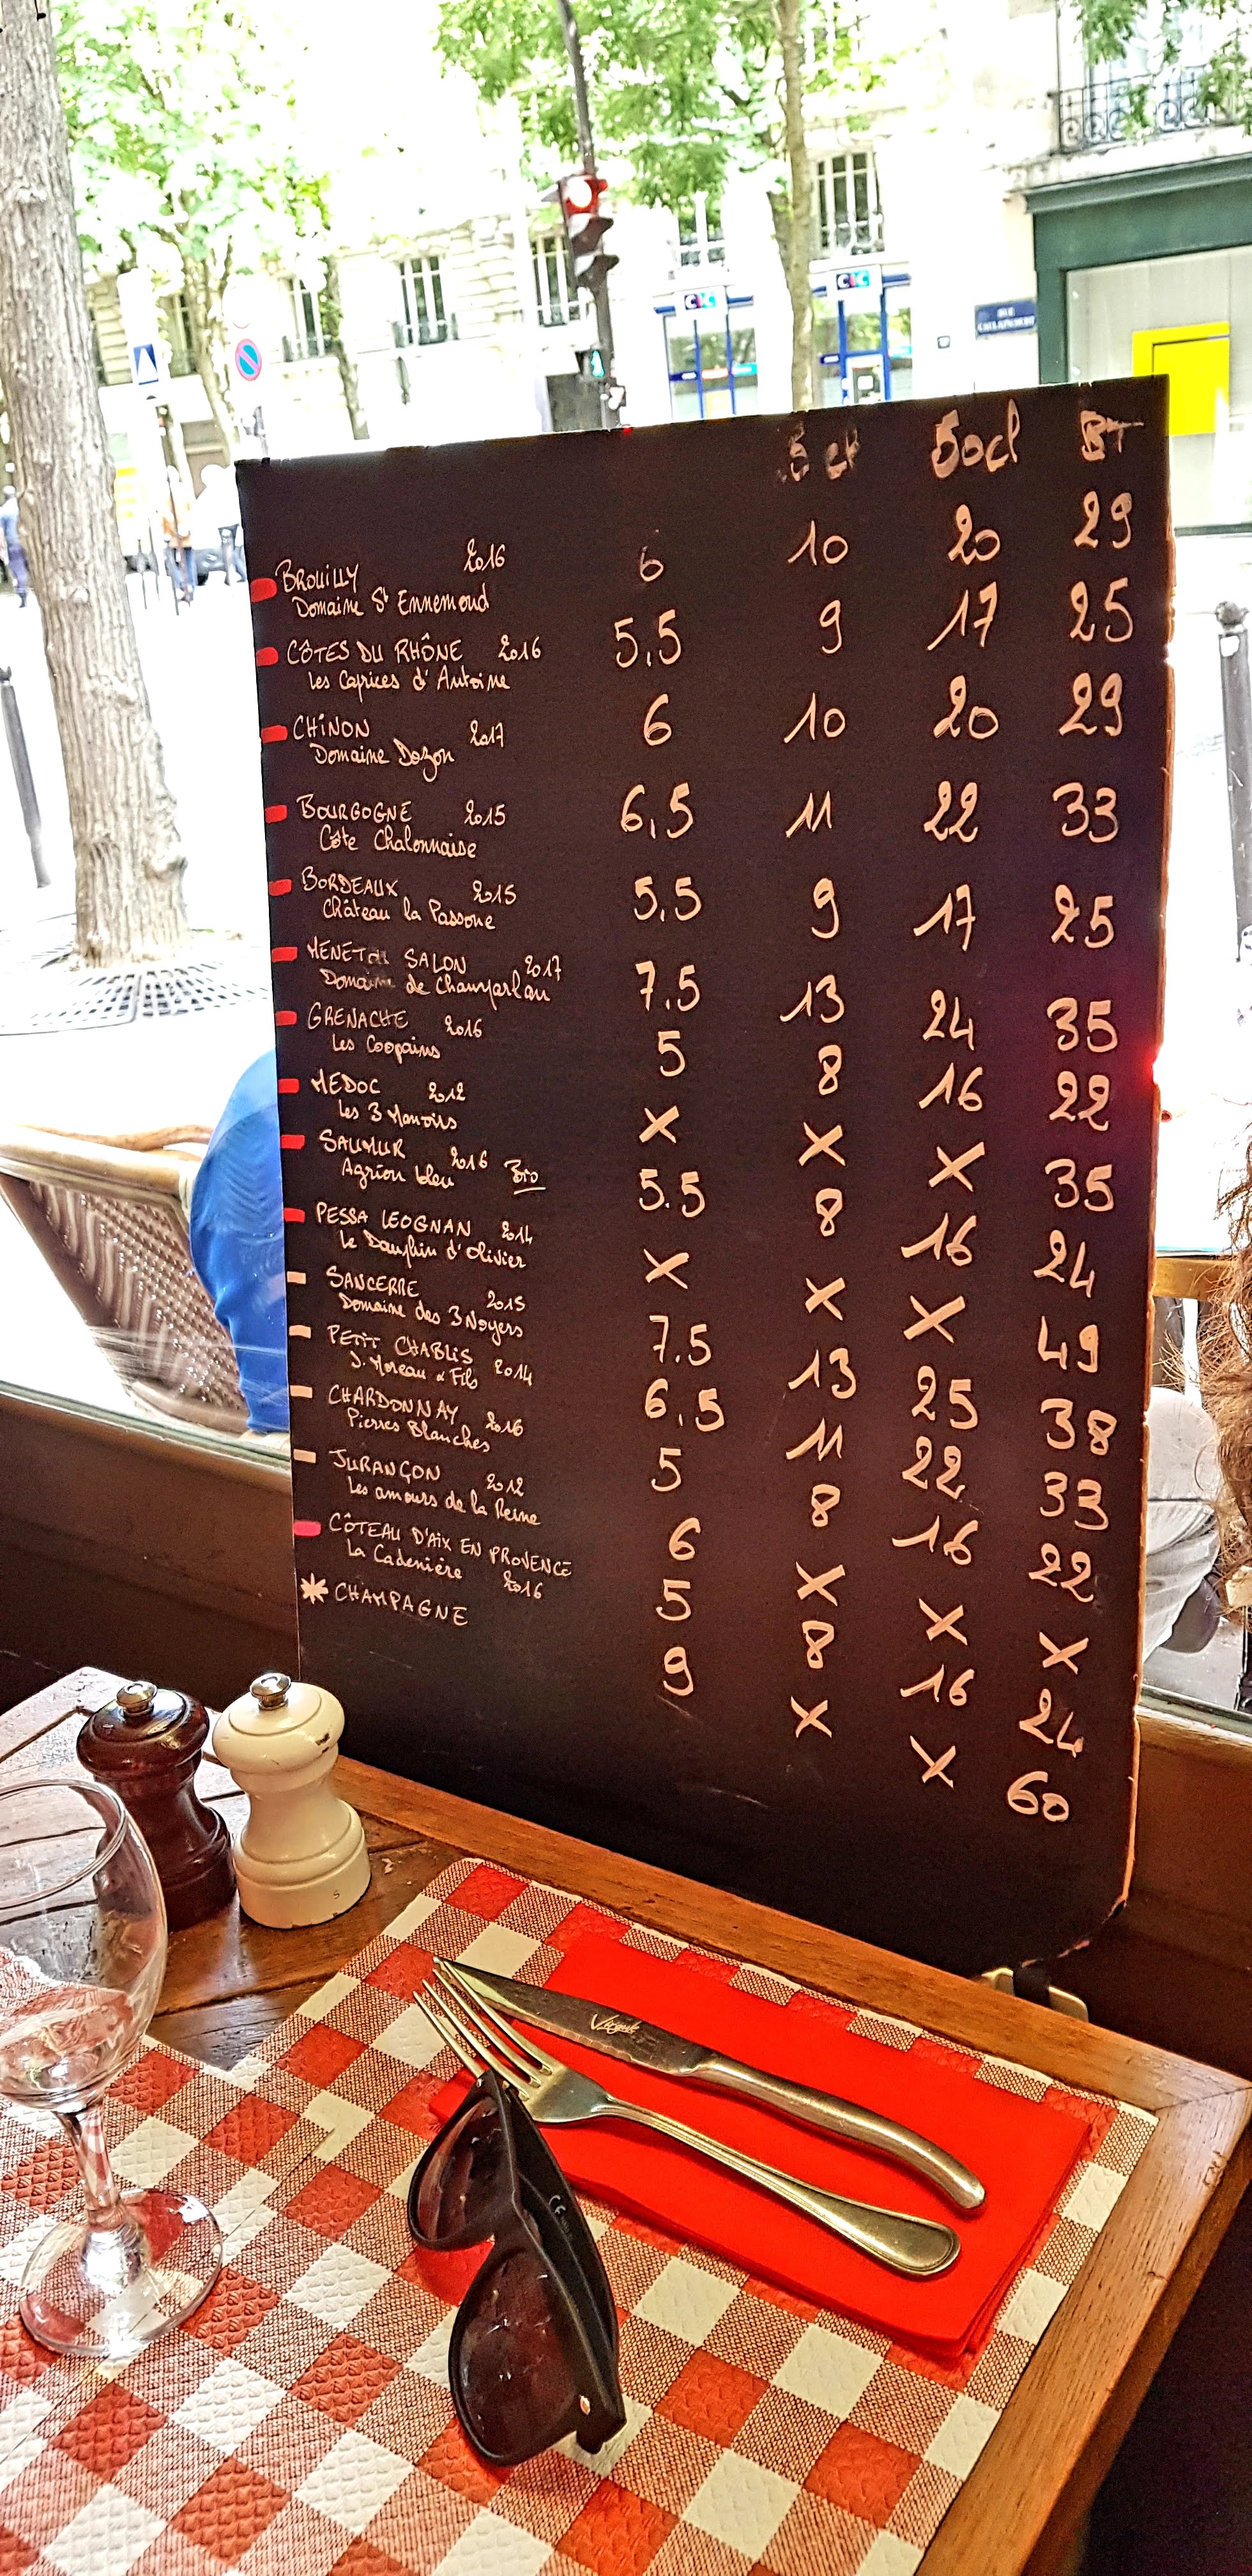 CIC
CIC
RUE CAULAINCOURT
50cl BT
BROUILLY 2016 6 10 20 29
Domaine St Ennemond
CÔTES DU RHÔNE 2016 5,5 9 17 25
Les Caprices d'Antoine
CHINON 2017 6 10 20 29
Domaine Dozon
BOURGOGNE 2015 6,5 11 22 33
Côte Chalonnaise
BORDEAUX 2015 5,5 9 17 25
Château la Passone
MENETOU SALON 2017 7,5 13 24 35
Domaine de Champarlan
GRENACHE 2016 5 8 16 22
Les Coopains
MEDOC 2012 X X X 35
Les 3 Manoirs
SAUMUR 2016 5.5 8 16 24
Agrion bleu Bio
PESSA LEOGNAN 2014 X X X 49
Le Dauphin d'Olivier
SANCERRE 2015 7.5 13 25 38
Domaine des 3 Noyers
PETIT CHABLIS 2014 6,5 11 22 33
J. Moreau & Fils
CHARDONNAY 2016 5 8 16 22
Pierres Blanches
JURANÇON 2012 6 X X X
Les amours de la Reine
CÔTEAU D'AIX EN PROVENCE 5 8 16 24
La Cadenière 2016
CHAMPAGNE 9 X X 60